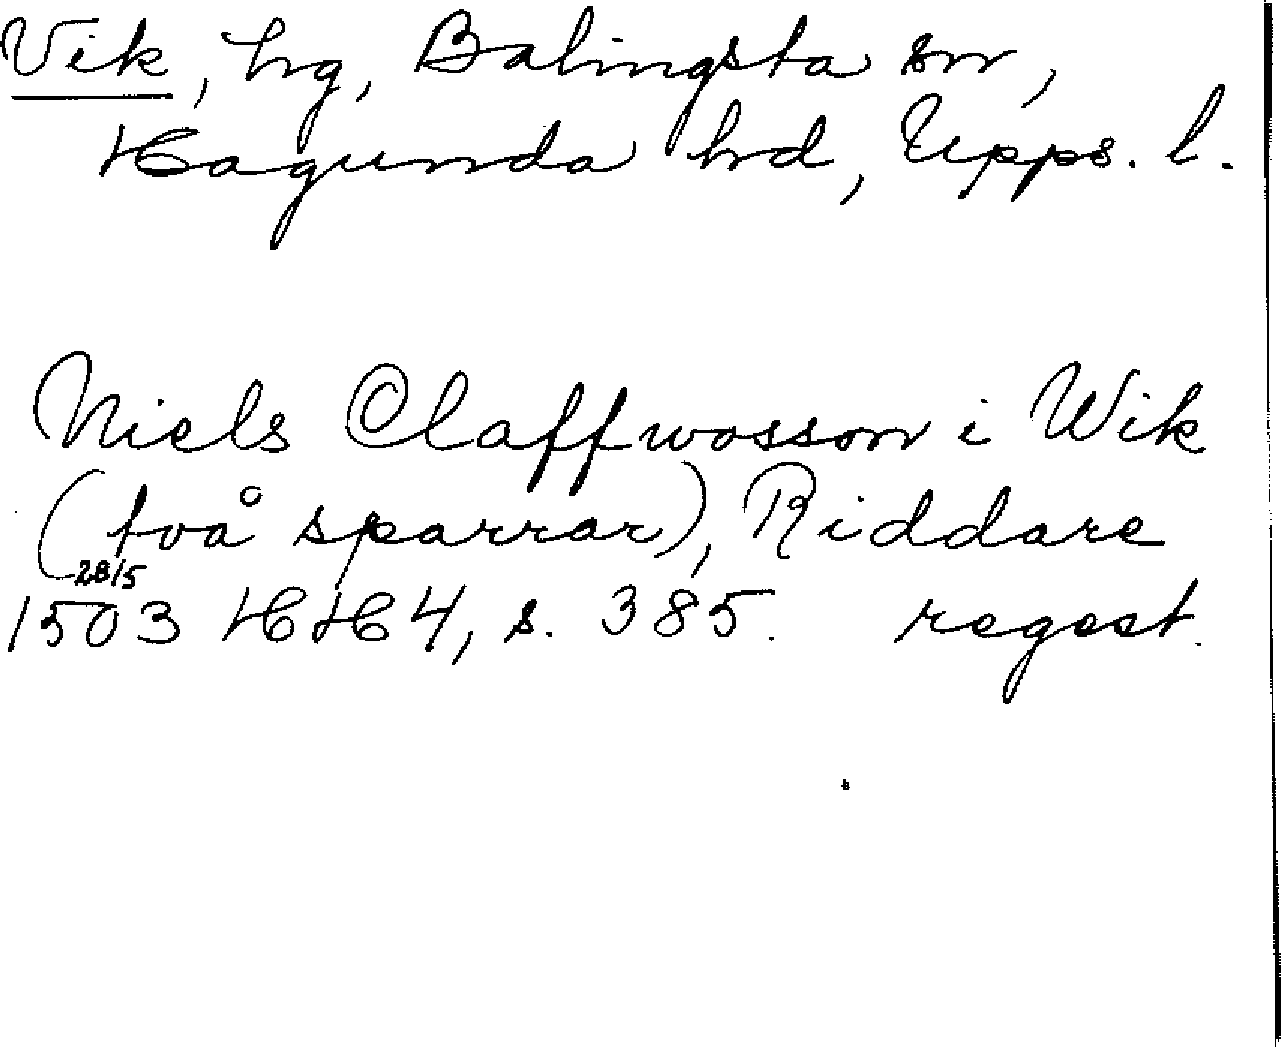 Vik, hg, Balingsta sn,
Hagunda hd, Upps. l.
Niels Claffwosson i Wik
(två sparrar), Riddare
28/5
1503 HH 4, s. 385. regest.